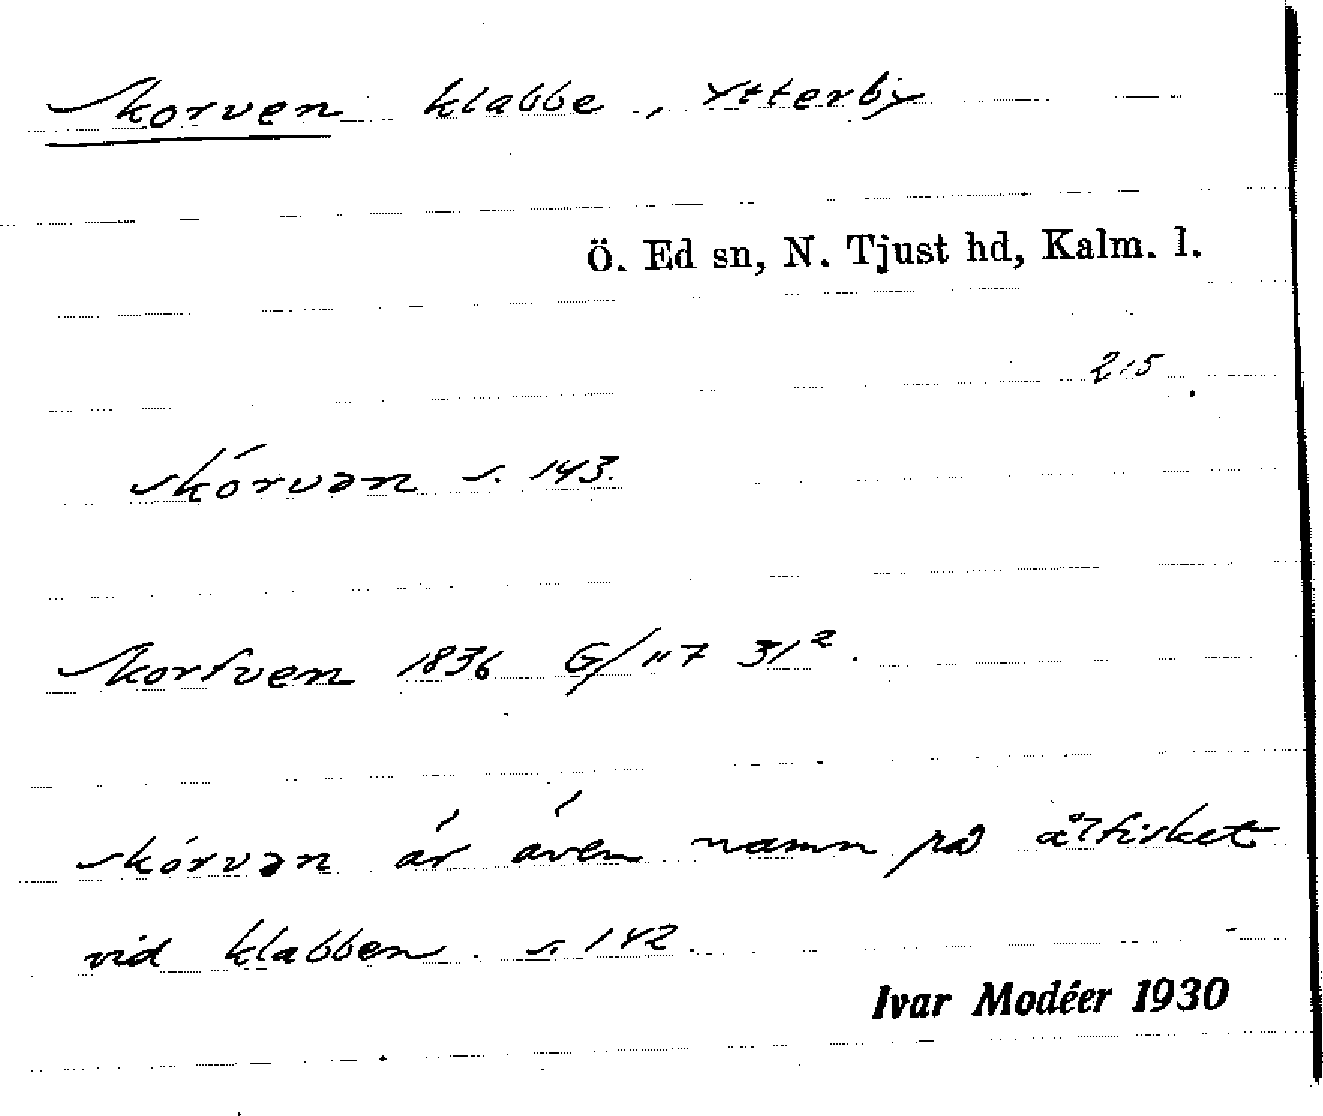 Skorven klabbe, Ytterby
Ö. Ed sn, N. Tjust hd, Kalm. l.
215
skórvən s. 143.
Skorfven 1836 G/117 31²
skórvən är även namn på ålfisket
vid klabben. s. 142.
Ivar Modéer 1930